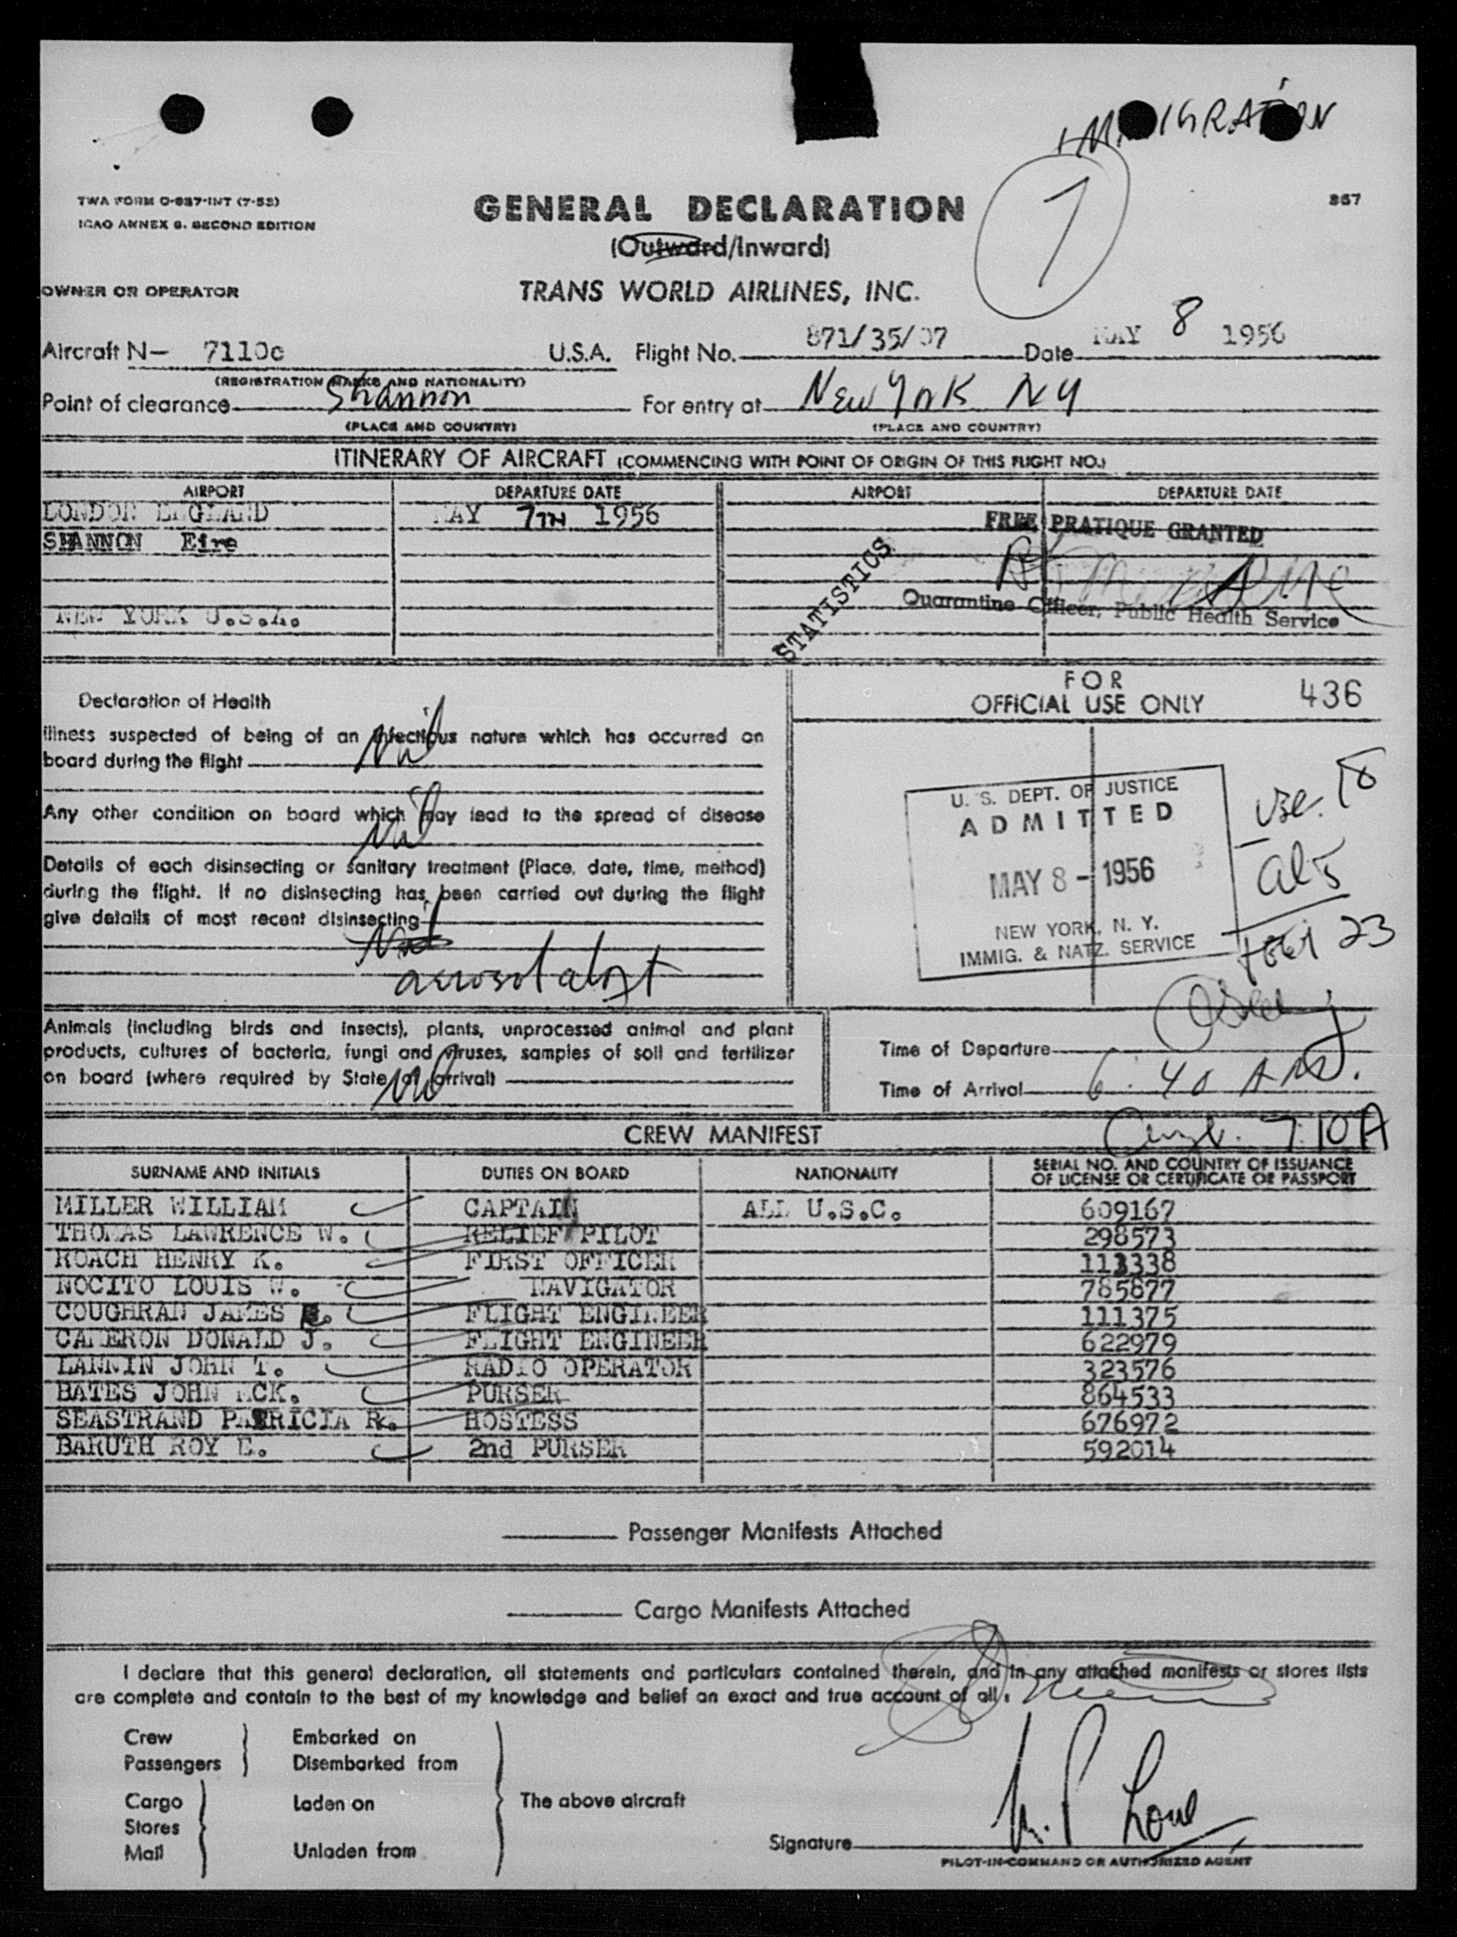 IMMIGRATION
1
TWA FORM O-837-INT (7-53)
ICAO ANNEX 9. SECOND EDITION
GENERAL DECLARATION
867
(Outward/Inward)
OWNER OR OPERATOR
TRANS WORLD AIRLINES, INC.
Aircraft N— 7110c U.S.A. Flight No. 871/35/07 Date MAY 8 1956
(REGISTRATION MARKS AND NATIONALITY)
Point of clearance Shannon For entry at New York NY
(PLACE AND COUNTRY) (PLACE AND COUNTRY)
ITINERARY OF AIRCRAFT (COMMENCING WITH POINT OF ORIGIN OF THIS FLIGHT NO.)
AIRPORT DEPARTURE DATE AIRPORT DEPARTURE DATE
LONDON ENGLAND MAY 7TH 1956
FREE PRATIQUE GRANTED
SHANNON Eire
STATISTICS
Quarantine Officer, Public Health Service
NEW YORK U.S.A.
Declaration of Health
FOR
OFFICIAL USE ONLY 436
Illness suspected of being of an infectious nature which has occurred on
board during the flight Nil
Any other condition on board which may lead to the spread of disease
Nil
Details of each disinsecting or sanitary treatment (Place, date, time, method)
during the flight. If no disinsecting has been carried out during the flight
give details of most recent disinsecting
aerosol
U. S. DEPT. OF JUSTICE
ADMITTED
MAY 8 - 1956
NEW YORK, N. Y.
IMMIG. & NATZ. SERVICE
USC 18
al 5
Total 23
Animals (including birds and insects), plants, unprocessed animal and plant
products, cultures of bacteria, fungi and viruses, samples of soil and fertilizer
on board (where required by State of arrival) Nil
Time of Departure
Time of Arrival 6:40 AM.
7:10A
CREW MANIFEST
SURNAME AND INITIALS DUTIES ON BOARD NATIONALITY SERIAL NO. AND COUNTRY OF ISSUANCE
OF LICENSE OR CERTIFICATE OR PASSPORT
MILLER WILLIAM CAPTAIN ALL U.S.C. 609167
THOMAS LAWRENCE W. RELIEF PILOT 298573
ROACH HENRY K. FIRST OFFICER 113338
NOCITO LOUIS W. NAVIGATOR 785877
COUGHRAN JAMES E. FLIGHT ENGINEER 111375
CAMERON DONALD J. FLIGHT ENGINEER 622979
LANNIN JOHN T. RADIO OPERATOR 323576
BATES JOHN MCK. PURSER 864533
SEASTRAND PATRICIA R. HOSTESS 676972
BARUTH ROY E. 2nd PURSER 592014
Passenger Manifests Attached
Cargo Manifests Attached
I declare that this general declaration, all statements and particulars contained therein, and in any attached manifests or stores lists
are complete and contain to the best of my knowledge and belief an exact and true account of all:
Crew Embarked on
Passengers Disembarked from
Cargo Laden on The above aircraft
Stores
Mail Unladen from
Signature
PILOT-IN-COMMAND OR AUTHORIZED AGENT